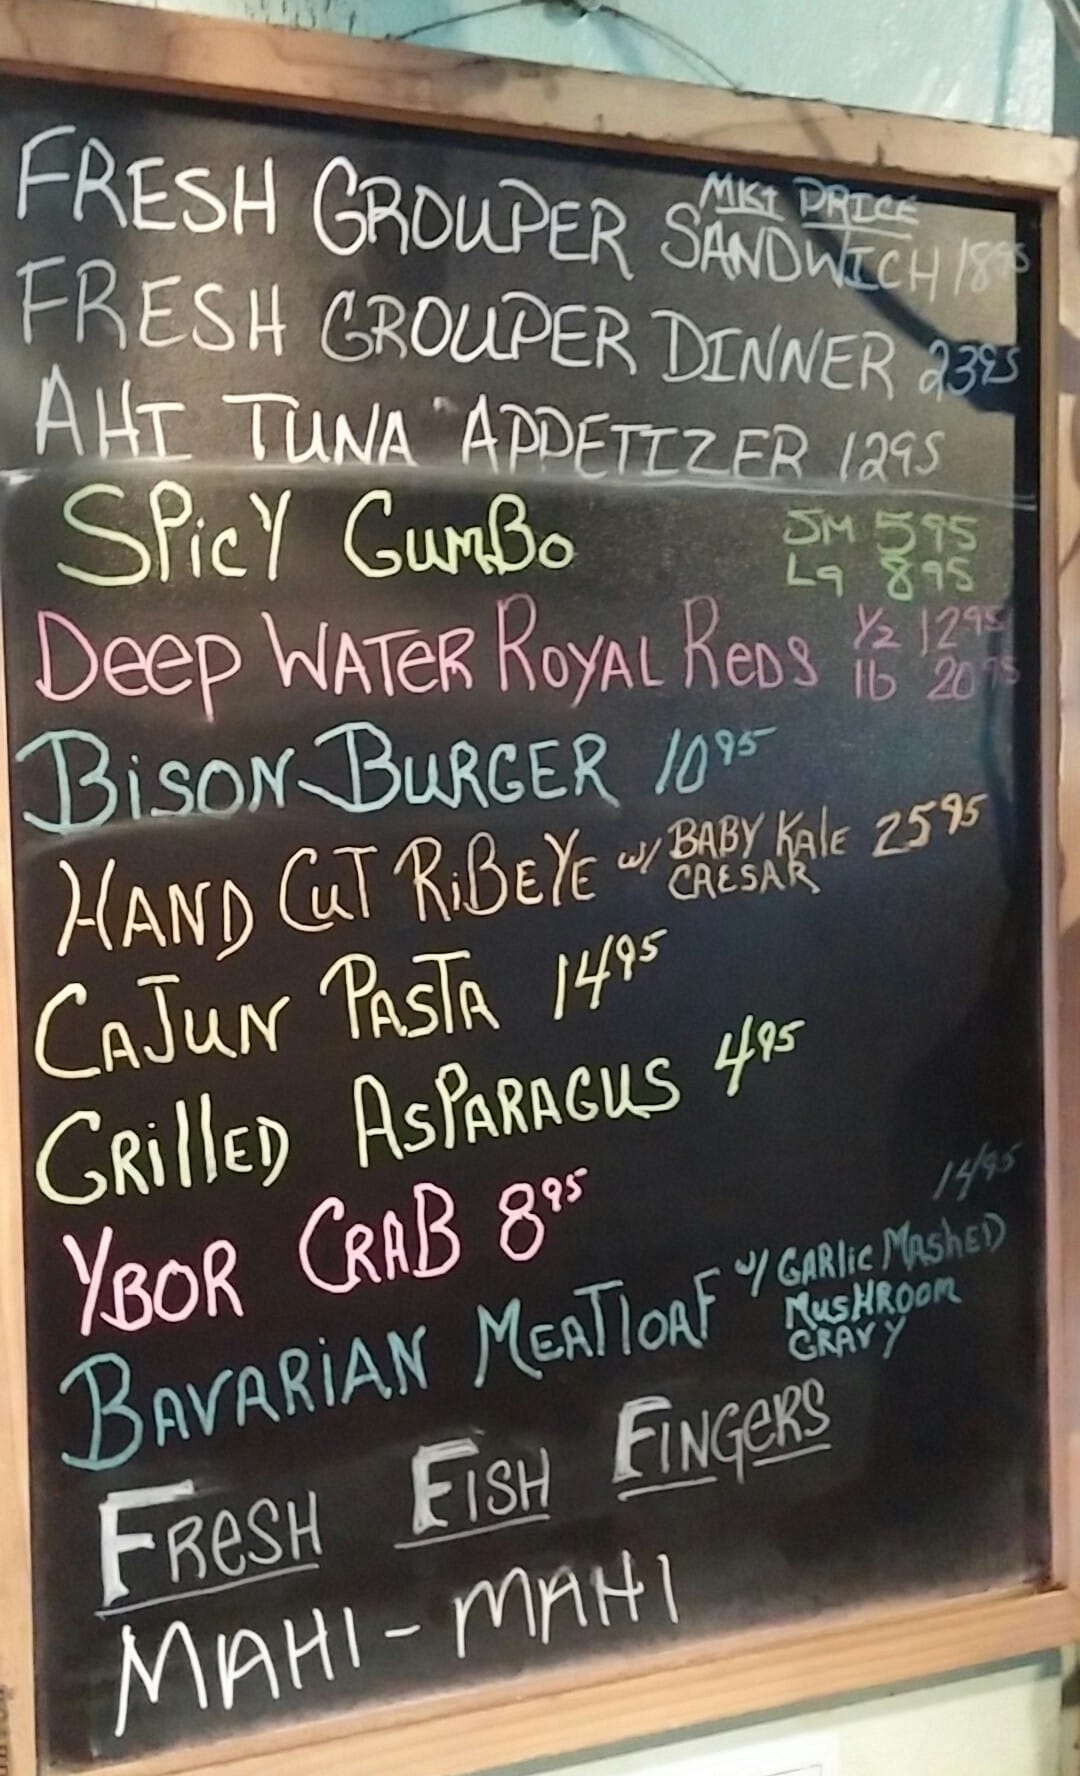 MKt PRICE
FRESH GROUPER SANDWICH 1895
FRESH GROUPER DINNER 2395
AHI TUNA APPETIZER 1295
SPicY GumBo SM 595
Lg 895
DeeP WATeR ROYAL ReDS 1/2 1295
lb 2095
BiSON BURGER 1095
HAND CuT RiBEYE w/ BABY Kale 2595
CAESAR
CAJUN PASTA 1495
GRillED ASPARAGUS 495
YBOR CRAB 895
1495
BAVARiAN MEATloAF w/ GARlic MASheD
MusHROOm
GRAVY
FReSH FISH FINGeRS
MAHI-MAHI